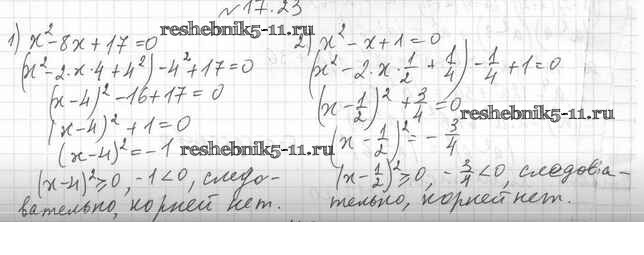 №17.23
1) x² - 8x + 17 = 0
(x² - 2·x·4 + 4²) - 4² + 17 = 0
(x-4)² - 16 + 17 = 0
(x-4)² + 1 = 0
(x-4)² = -1
(x-4)² ≥ 0, -1 < 0, следо-
вательно, корней нет.
reshebnik5-11.ru
reshebnik5-11.ru
2) x² - x + 1 = 0
(x² - 2·x·1/2 + 1/4) - 1/4 + 1 = 0
(x - 1/2)² + 3/4 = 0
(x - 1/2)² = - 3/4
(x - 1/2)² ≥ 0, - 3/4 < 0, следова-
тельно, корней нет.
reshebnik5-11.ru